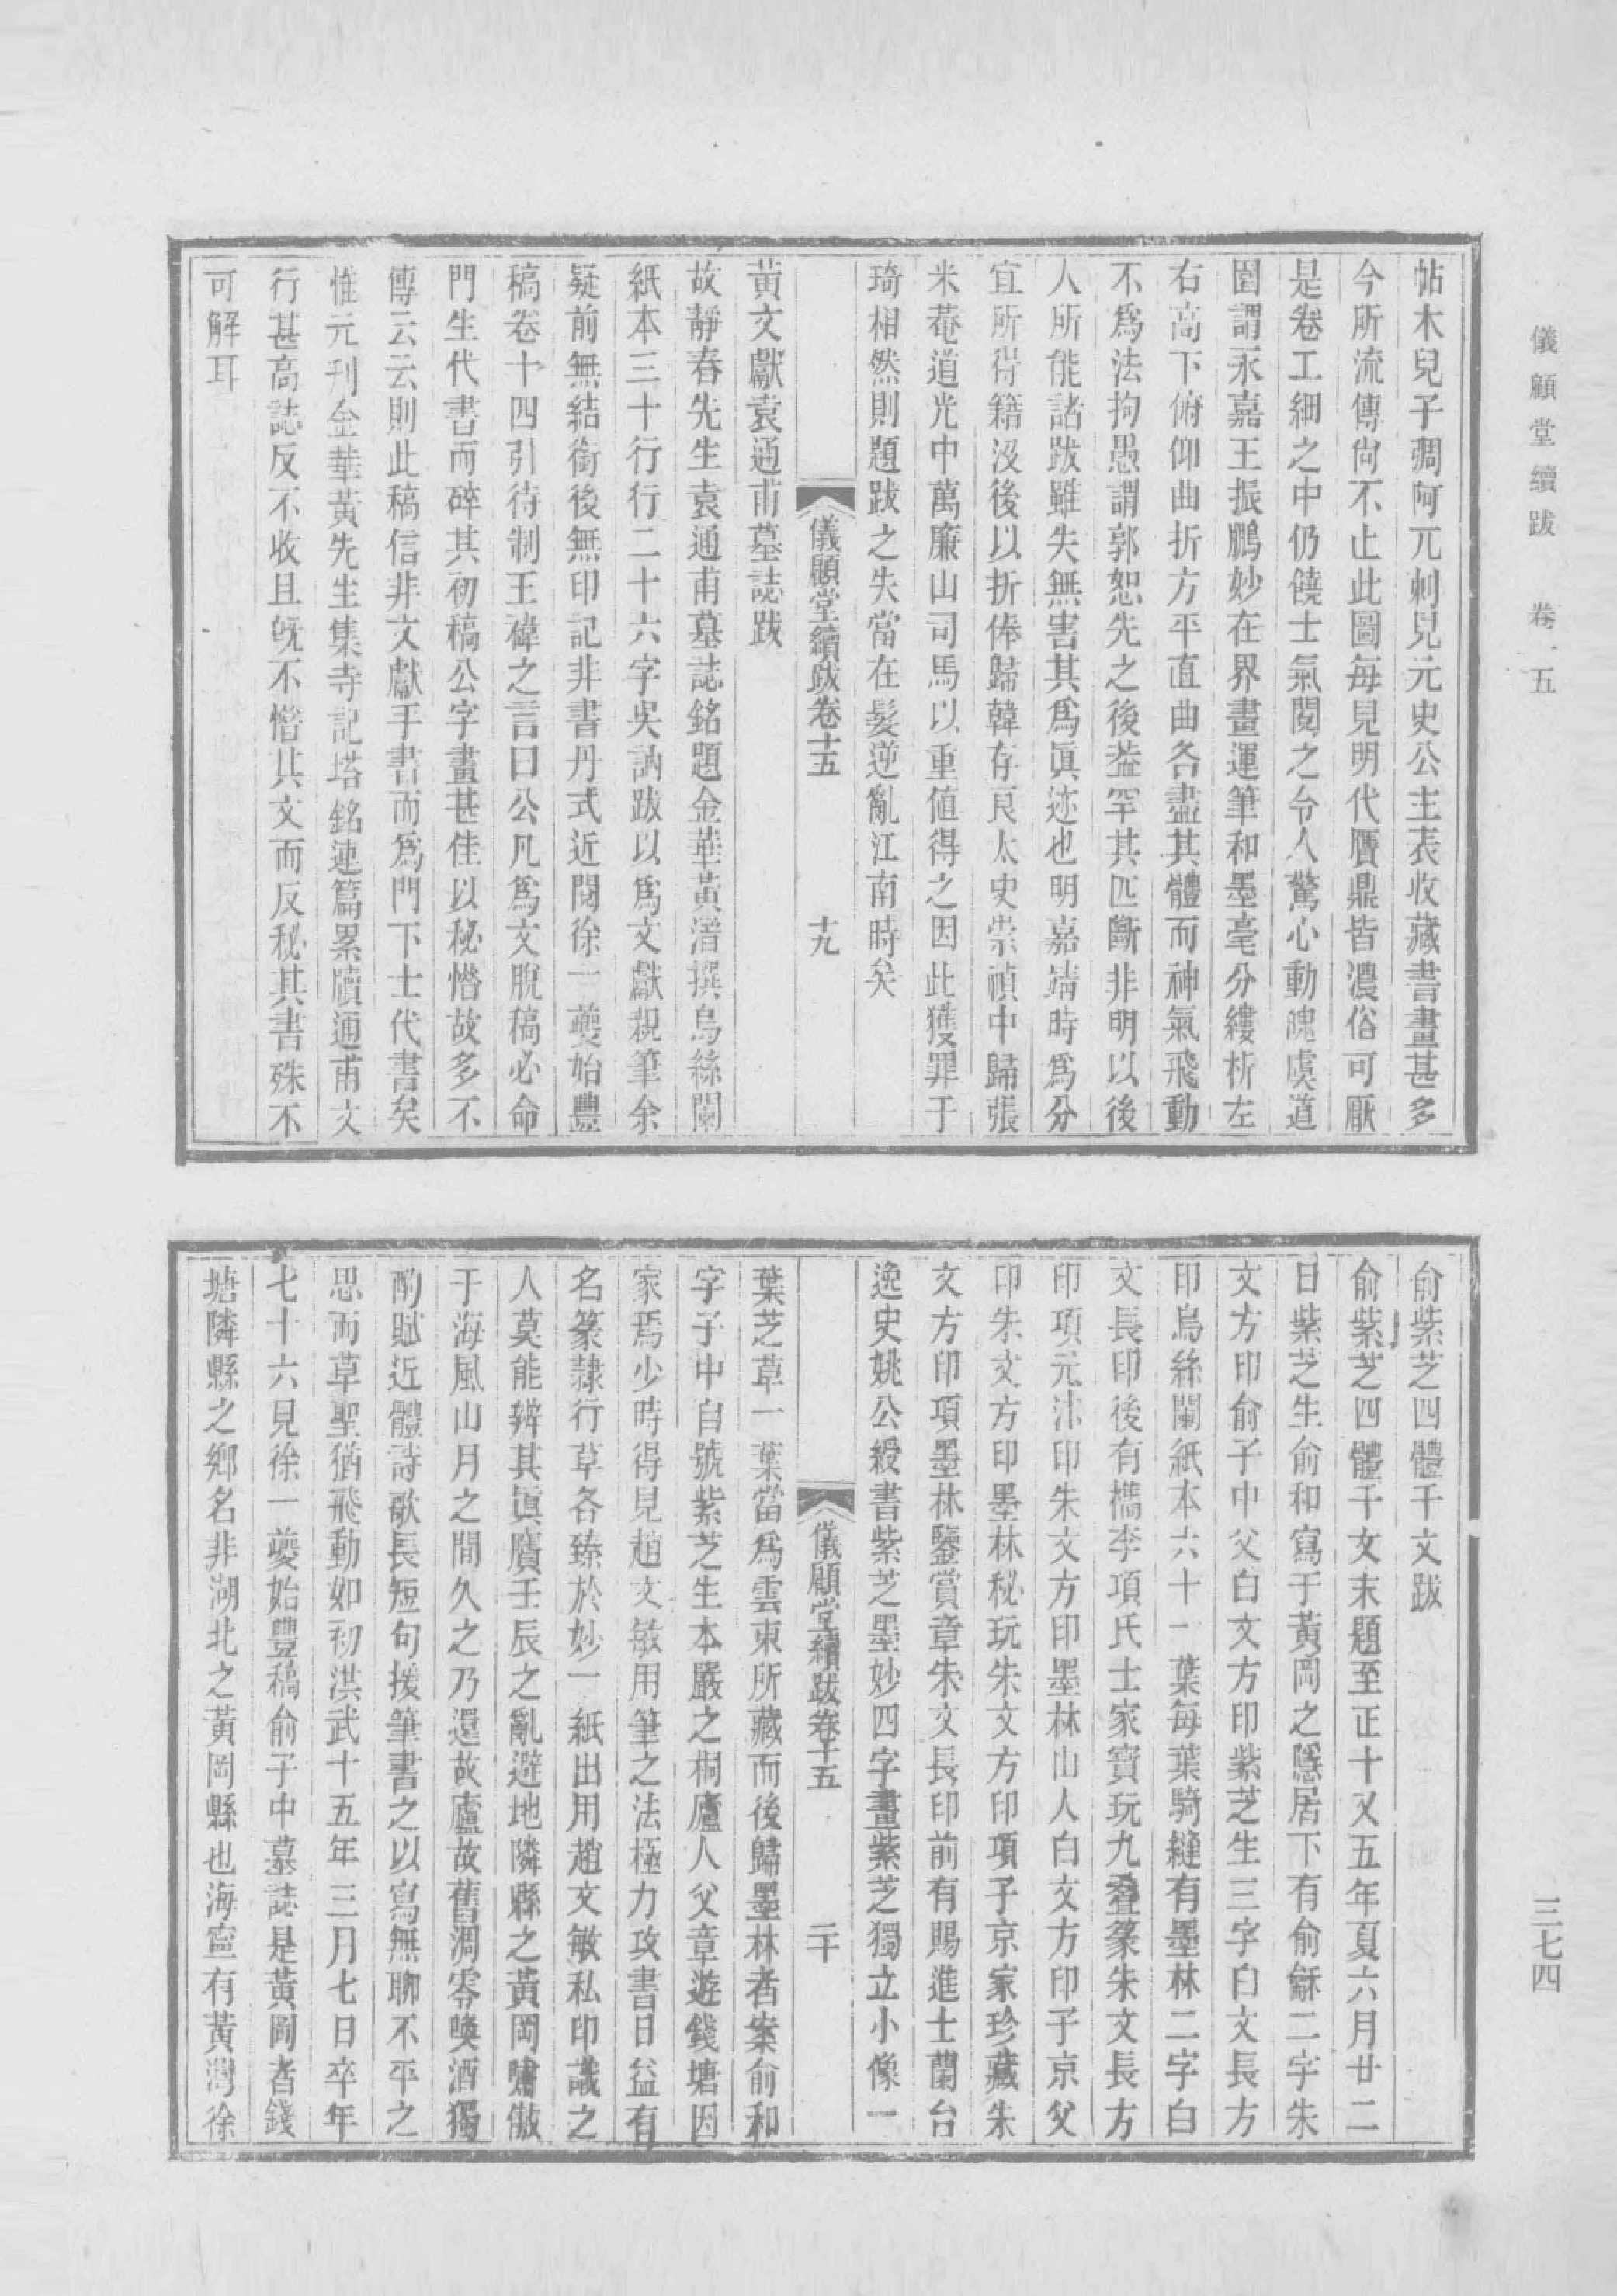 儀顧堂續跋　卷一五
帖木兒子彫阿兀剌見元史公主表收藏書畫甚多
今所流傳尙不止此圖每見明代贗鼎皆濃俗可厭
是卷工細之中仍饒士氣閱之令人驚心動魄虞道
園謂永嘉王振鵬妙在界畫運筆和墨毫分縷析左
右高下俯仰曲折方平直曲各盡其體而神氣飛動
不爲法拘愚謂郭恕先之後蓋罕其匹斷非明以後
人所能諸跋雖失無害其爲眞迹也明嘉靖時爲分
宜所得籍沒後以折俸歸韓存良太史崇禎中歸張
米菴道光中萬廉山司馬以重値得之因此獲罪于
琦相然則題跋之失當在髮逆亂江南時矣
儀顧堂續跋卷十五　十九
黃文獻袁通甫墓誌跋
故靜春先生袁通甫墓誌銘題金華黃溍撰烏絲闌
紙本三十行行二十六字吳訥跋以爲文獻親筆余
疑前無結銜後無印記非書丹式近閱徐一夔始豐
稿卷十四引待制王禕之言曰公凡爲文脫稿必命
門生代書而碎其初稿公字畫甚佳以秘惜故多不
傳云云則此稿信非文獻手書而爲門下士代書矣
惟元刊金華黃先生集寺記塔銘連篇累牘通甫文
行甚高誌反不收且旣不惜其文而反秘其書殊不
可解耳
俞紫芝四體千文跋
俞紫芝四體千文末題至正十又五年夏六月廿二
日紫芝生俞和寫于黃岡之隱居下有俞龢二字朱
文方印俞子中父白文方印紫芝生三字白文長方
印烏絲闌紙本六十一葉每葉騎縫有墨林二字白
文長印後有檇李項氏士家寶玩九疊篆朱文長方
印項元汴印朱文方印墨林山人白文方印子京父
印朱文方印墨林秘玩朱文方印項子京家珍藏朱
文方印項墨林鑒賞章朱文長印前有賜進士蘭台
逸史姚公綬書紫芝墨妙四字畫紫芝獨立小像一
儀顧堂續跋卷十五　二十
葉芝草一葉當爲雲東所藏而後歸墨林者案俞和
字子中自號紫芝生本嚴之桐廬人父章遊錢塘因
家焉少時得見趙文敏用筆之法極力攻書日益有
名篆隸行草各臻於妙一紙出用趙文敏私印識之
人莫能辨其眞贗壬辰之亂避地隣縣之黃岡嘯傲
于海風山月之間久之乃還故廬故舊凋零喚酒獨
酌賦近體詩歌長短句援筆書之以寫無聊不平之
思而草聖猶飛動如初洪武十五年三月七日卒年
七十六見徐一夔始豐稿俞子中墓誌是黃岡者錢
塘隣縣之鄕名非湖北之黃岡縣也海寧有黃灣徐
三七四